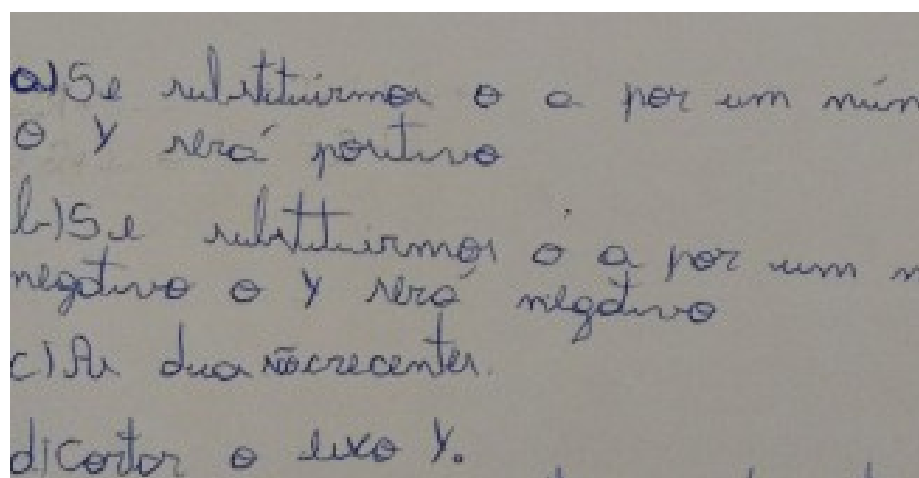 a) Se substituirmos o a por um núm
o y será positivo
b-) Se substituirmos o a por um n
negativo o y será negativo
c) As duas são crecentes.
d) cortar o eixo y.